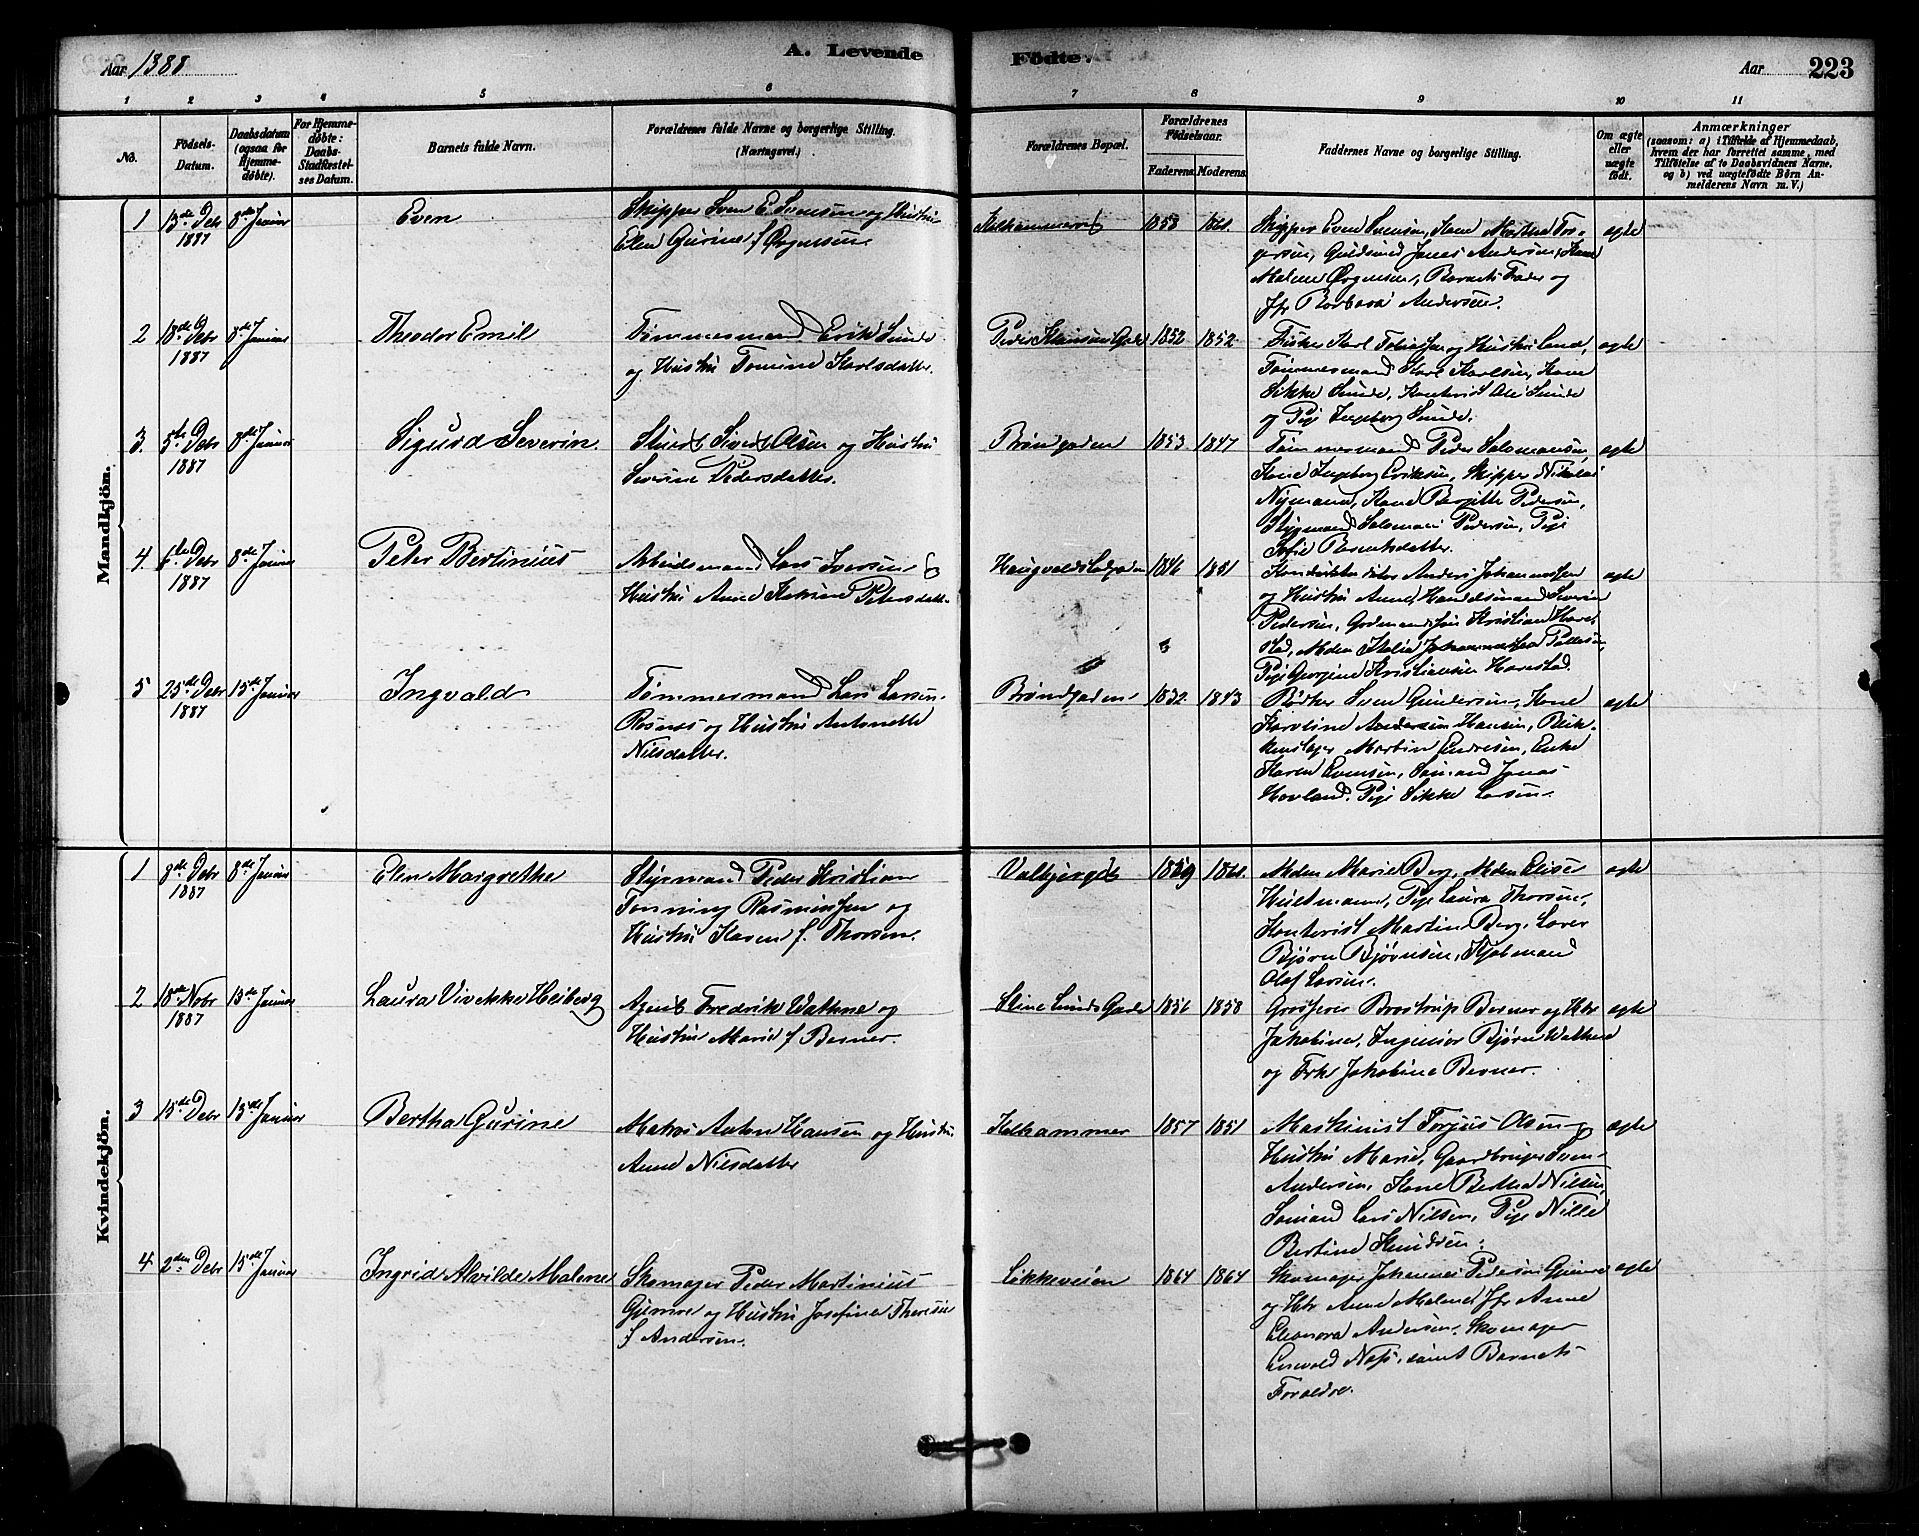 Aar 1888
A. Levende
Födte.
Aar
223
1 2 3 4 5 6 7 8 9 10 11
No.
Födsels-
Datum.
Daabsdatum
(ogsaa for
Hjemme-
døbte).
For Hjemme-
døbte:
Daabs-
Stadfæstel-
ses Datum.
Barnets fulde Navn.
Forældrenes fulde Navne og borgerlige Stilling.
(Næringsvei.)
Forældrenes Bopæl.
Forældrenes
Födselsaar.
Faderens. Moderens.
Faddernes Navne og borgerlige Stilling.
Om ægte
eller
uægte
født.
Anmærkninger
(saasom: a) i Tilfælde af Hjemmedaab,
hvem der har forrettet samme, med
Tilføielse af to Daabsvidners Navne,
og b) ved uægtefødte Børn An-
melderens Navn m. V.)
Mandkjön.
1
13de Debr
1887
8de Januar
Even
Skipper Sven E. Svensen og Hustru
Elen Gurine f Ørgensen
1853
Skipper Even Svensen, Kone Martha Tor-
gersen, Guldsmed Jonas Andersen, Kone
Malene Ørgensen, Barnets Fader og
Jfr Barbara Andersen.
ægte
2
18de Debr
1887
8de Januar
Theodor Emil
Tømmermand Erik Sunde
og Hustru Tomine Karlsdatter.
1852 1852
Fisker Karl Tobiassen og Hustru Lena,
Tømmermand Karl Karlsen, Kone
Sikke Sunde, Kontorist Ole Sunde
og Pige Ingeborg Sunde.
ægte
3.
5te Debr
1887
8de Januar
Sigurd Severin.
Stuert Sivert Olsen og Hustru
Severine Pedersdatter.
Brøndgaden
1853. 1847
Tømmermand Peder Salomonsen,
Kone Ingeborg Eriksen, Skipper Nikolai
Nymand, Kone Birgitte Pedersen,
Styrmand Salomon Pedersen, Pige
Sofie Berntsdatter.
ægte
4
6te Debr
1887
8de Januar
Peter Bertinius
Arbeidsmand Lars Iversen &
Hustru Anne Petersdatter
Haugvaldstadgaden
1846 1851
Anders Johannessen
og Hustru Anne, Handelsmand Severin
Pedersen, Kristian Hare-
stad,
Pige Georgine Kristiansen Harestad.
ægte
5
25de Debr
1887
15de Januar
Ingvald
Tømmermand Lars Larsen
Rosnes og Hustru Antonette
Nilsdatter.
Brøndgaden
1832. 1843
Bødker Sven Gundersen, Kone
Karoline Andersen Hansen, Blik-
kenslager Martin Endresen, Enke
Karen Evensen, Sømand Jonas
Hovland, Pige Sikke Larsen.
ægte
Kvindekjön.
1
8de Debr
1887
8de Januar
Elen Margrethe
Styrmand Peder Kristian
Tønning Rasmussen og
Hustru Karen f. Thorsen.
Valbjergdt
1859
Mdm Marie Berg, Mdm Elise
Hultmann, Pige Laura Thorsen,
Kontorist Martin Berg, Lærer
Bjørn Bjørnsen, Kjøbmand
Olaf Larsen.
ægte
2
18de Nobr
1887
15de Januar
Laura Vivekke Heiberg
Agent Fredrik Wathne og
Hustru Marie f Berner.
Stine Lunds Gade
1856 1858
Grosserer Brostrup Berner og Htr
Jakobine, Ingeniør Bjørn Wathne
og Frk Jakobine Berner.
ægte
3
15de Debr
15de Januar
Bertha Gurine
Matros Anton Hansen og Hustru
Anne Nilsdatter
Kalhammer
1857 1851
Maskinist Torjus Olsen og
Hustru Marie, Gaardbruger Sven
Andersen, Kone Bertha Nilsen,
Sømand Lars Nilsen, Pige Nille
Bertine Knudsen.
ægte
4
2den Debr
15de Januar
Ingrid Alvilde Malene
Skomager Peder Martinius
Gimre og Hustru Josefine Theresie
f Andersen.
Løkkeveien
1864 1864
Skomager Johannes Pedersen Gimre
og Htr Anne Malene, Jfr Anne
Eleonora Andersen, Skomager
Enevald Næss, samt Barnets
Forældre.
ægte